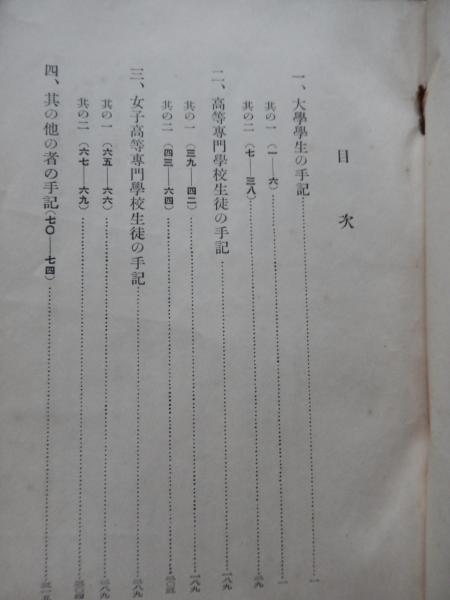 目次
一、大學學生の手記……一
其の一(一——六)……一
其の二(七——三八)……元
二、高等專門學校生徒の手記……一八九
其の一(三九——四二)……一八九
其の二(四三——六四)
三、女子高等專門學校生徒の手記
其の一(六五——六六)
其の二(六七——六九)
四、其の他の者の手記(七〇——七四)